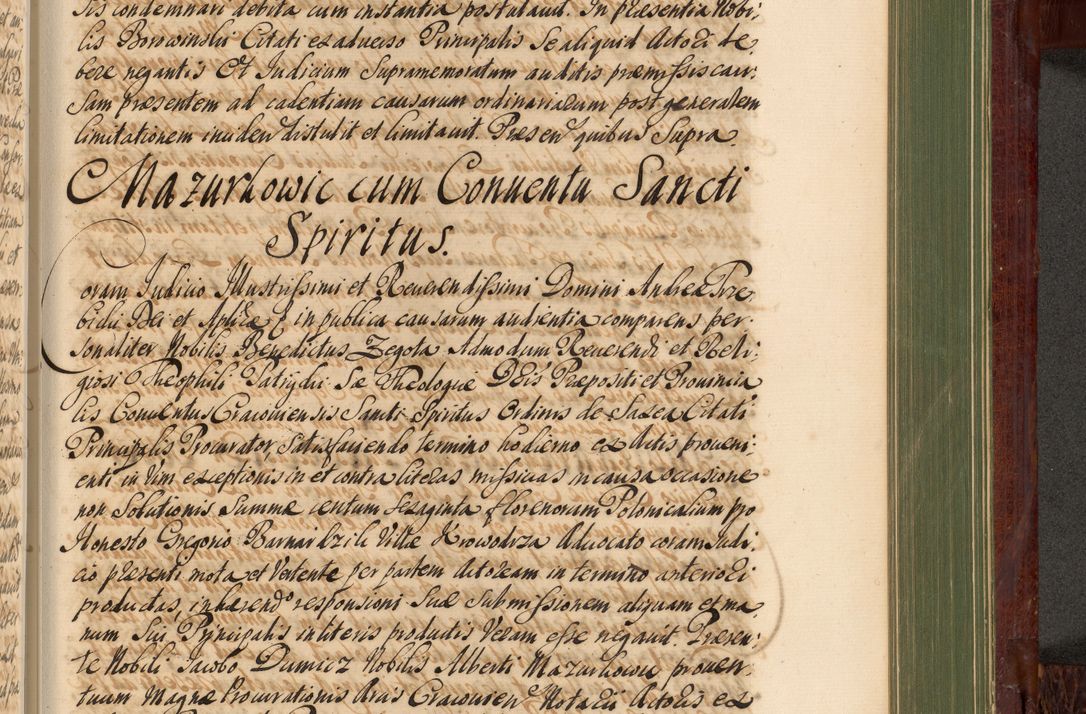 sis condemnari debita cum instantia postulauit. In præsentia Nobi,
lis Borowinski Citati ex aduerso Principalis Se aliquid Actori de,
bere negantis Et Iudicium Supramemoratum auditis præmissis cau,
sam præsentem ad cadentiam causarum ordinariarum post generalem
limitationem inciden distulit et limitauit. Præsen quibus Supra
Mazurkowic cum Conuentu Sancti
Spiritus.
Coram Iudicio Illustrissimi et Reuerendissimi Domini Andreæ Trze,
bicki Dei et Aplicæ in publica causarum audientia comparens per,
sonaliter Nobilis Benedictus Zegota Admodum Reuerendi et Reli,
giosi Theophili Patiydu Sæ Theologiæ Dris Præpositi et Prouincia
lis Conuentus Cracouiensis Sancti Spiritus Ordinis de Saxea Citati
Principalis Procurator, Satisfaciendo termino hodierno ex Actis proueni,
enti in Vim exceptionis in et contra literas missiuas in causa occasione
non Solutionis Summæ centum Sexaginta florenorum Polonicalium pro
Honesto Gregorio Barnardzik Villæ Krowodrza Aduocato coram Iudi,
cio præsenti mota et Vertente per partem Actoream in termino anteriori
productas, inhærendo responsioni Suæ Submissionem aliquam et ma,
num Sui Principalis in literis productis Veram esse negauit. Præsen,
te Nobili Iacobo Dumicz Nobilis Alberti Mazurkowic prouen,
tuum Magnæ Procurationis Arcis Cracouien Notarii Actoris ex